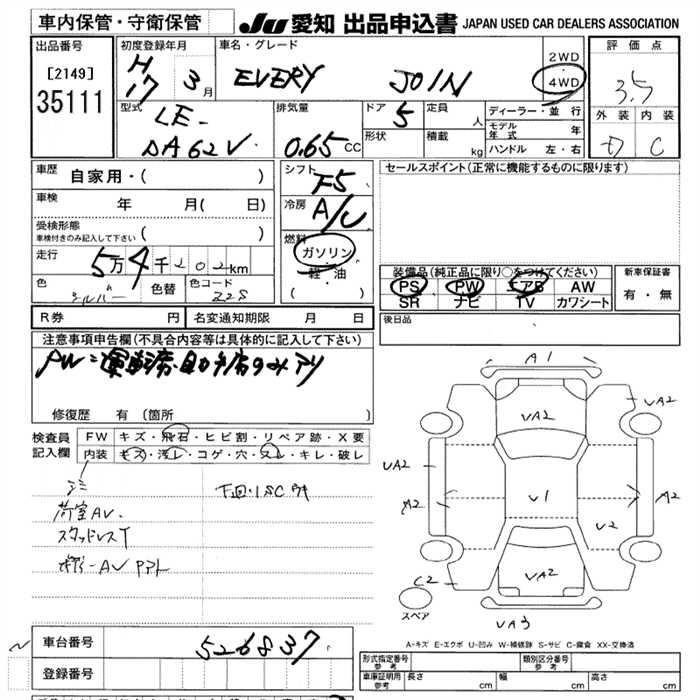 車内保管・守衛保管 JU 愛知 出品申込書 JAPAN USED CAR DEALERS ASSOCIATION
出品番号 初度登録年月 車名・グレード 2WD 評価点
[2149] H17 3月 EVERY JOIN 4WD 3.5
35111
型式 排気量 ドア 定員 ディーラー・並行 外装 内装
LE- 5 人 モデル年式 年
DA62V 0.65 CC 形状 積載 kg ハンドル 左・右 D C
車歴 自家用・( ) シフト F5 セールスポイント(正常に機能するものに限ります)
車検 年 月( 日) 冷房 A/C
受検形態
車検付きのみ記入して下さい ( ) 燃料
走行 5万4千202km ガソリン
軽・油
( )
色 シルバー 色替 色コード Z2S
装備品(純正品に限り○をつけてください) 新車保証書
PS PW エアB AW 有・無
SR ナビ TV カワシート
R券 円 名変通知期限 月 日 後日品
注意事項申告欄(不具合内容等は具体的に記入して下さい)
PW=運転席・助手席のみアリ
修復歴 有 (箇所 )
検査員記入欄 FW キズ・飛石・ヒビ割・リペア跡・X要
内装 キズ・汚レ・コゲ・穴・スレ・キレ・破レ
下回・ISC
荷室AV.
スタッドレスT
AV
A1
UA2
UA2
UA2
A2
A2
U1
U2
UA2
C2
スペア
UA3
A-キズ E-エクボ U-凹み W-補修跡 S-サビ C-腐食 XX-交換済
車台番号 526837
登録番号
形式指定番号 参考 類別区分番号 参考
車庫証明用 参考 長さ cm 幅 cm 高さ cm